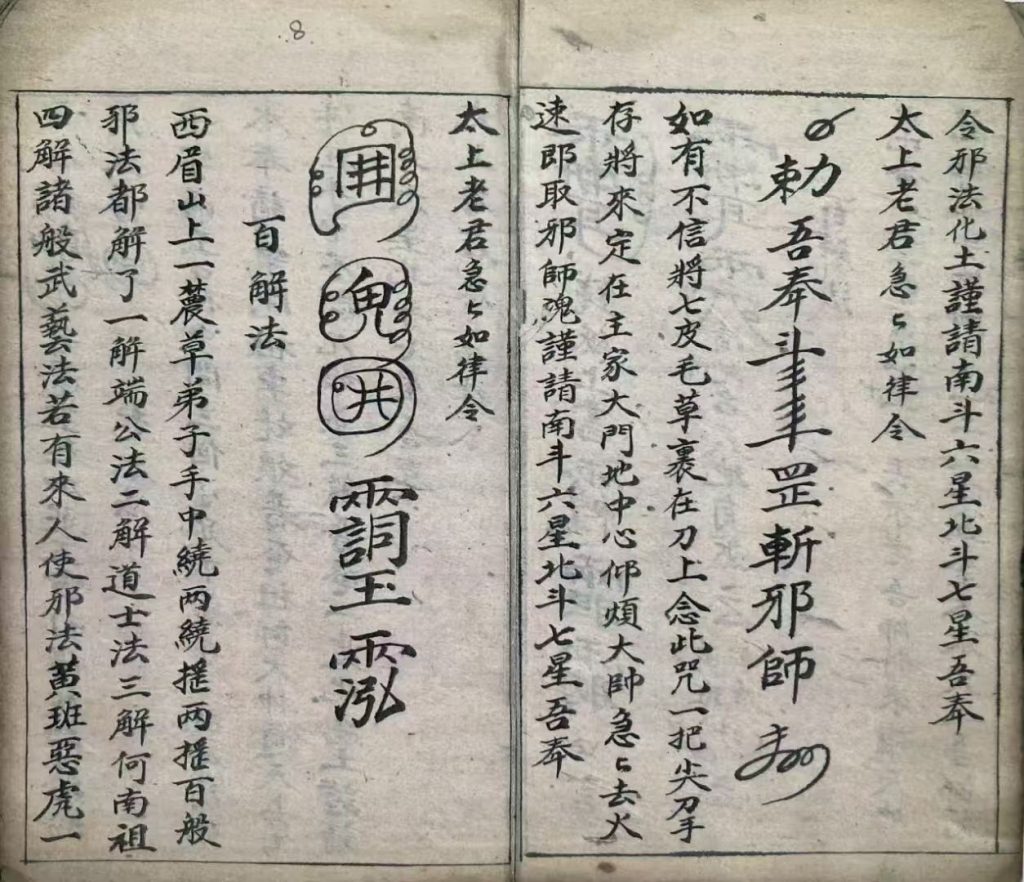 令邪法化土謹請南斗六星北斗七星吾奉
太上老君急々如律令
勅吾奉
罡斬邪師
如有不信將七皮毛草裏在刀上念此咒一把尖刀手
存將來定在主家大門地中心仰煩大帥急々去火
速即取邪師魂謹請南斗六星北斗七星吾奉
太上老君急々如律令
百解法
西眉山上一蔍草弟子手中繞两繞搖两搖百般
邪法都解了一解端公法二解道士法三解何南祖
四解諸般武藝法若有來人使邪法黃班惡虎一
8